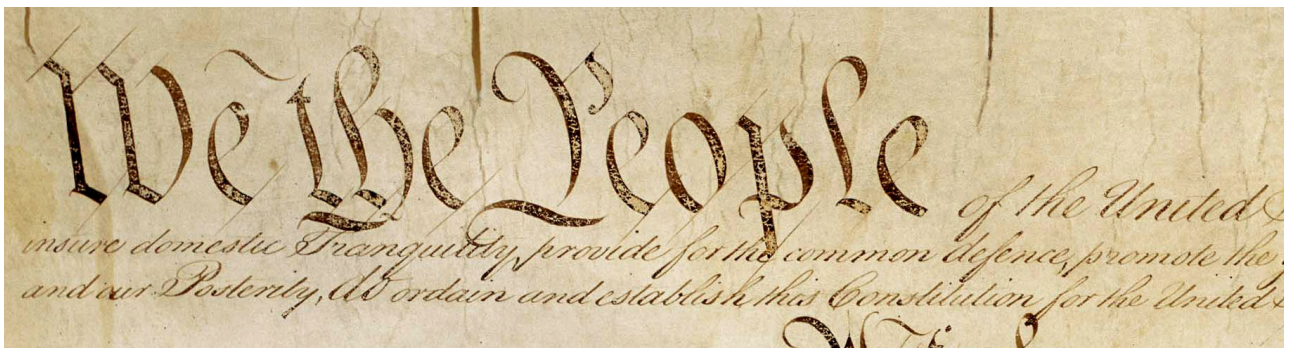 We the People of the United
insure domestic Tranquility, provide for the common defence, promote the
and our Posterity, do ordain and establish this Constitution for the United